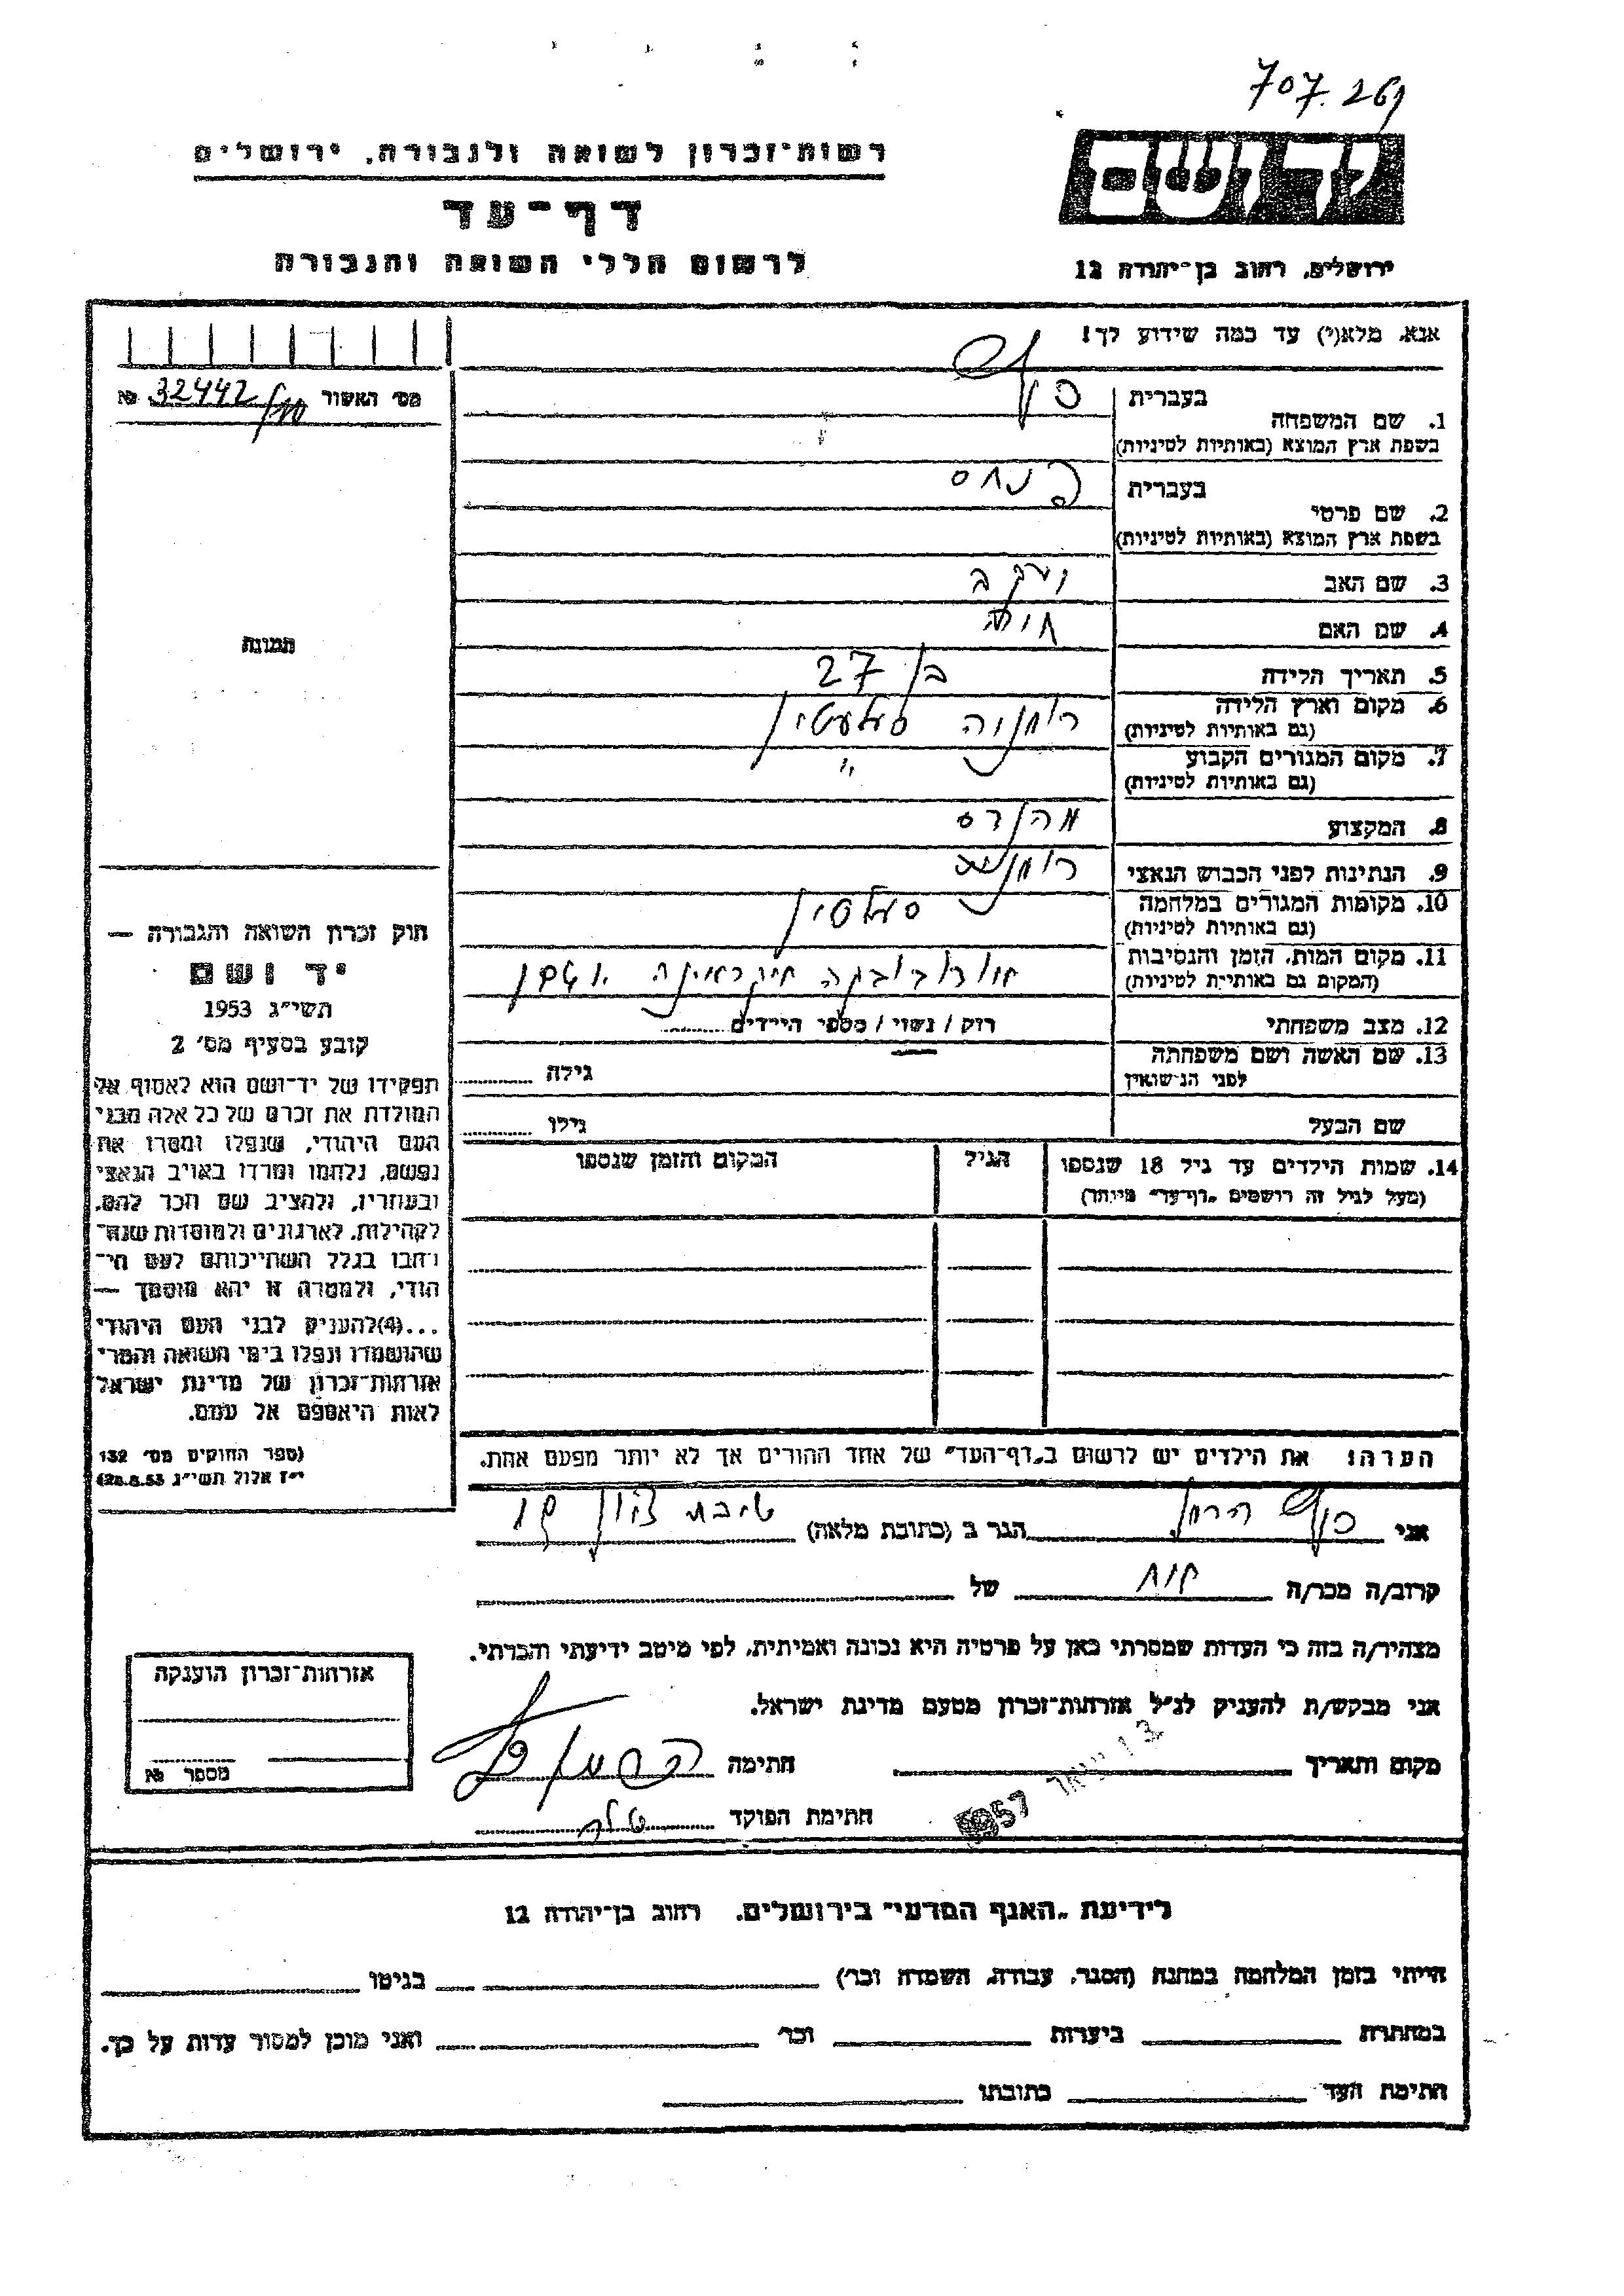 707.261
יד ושם
רשות־זכרון לשואה ולגבורה, ירושלים
דף־עד
לרשום חללי השואה והגבורה
ירושלים, רחוב בן־יהודה 12
אנא, מלא(י) עד כמה שידוע לך!
מס׳ האשור 32442 №
בעברית
1. שם המשפחה
בשפת ארץ המוצא (באותיות לטיניות)
בעברית פנחס
2. שם פרטי
בשפת ארץ המוצא (באותיות לטיניות)
3. שם האב יעקב
4. שם האם חיה
תמונה
5. תאריך הלידה בן 27
6. מקום וארץ הלידה רומניה
(גם באותיות לטיניות)
7. מקום המגורים הקבוע "
(גם באותיות לטיניות)
8. המקצוע מהנדס
9. הנתינות לפני הכבוש הנאצי רומנית
10. מקומות המגורים במלחמה
(גם באותיות לטיניות)
11. מקום המות, הזמן והנסיבות
(המקום גם באותיות לטיניות)
12. מצב משפחתי רוק / נשוי / מספר הילדים
13. שם האשה ושם משפחתה
לפני הנישואין
גילה
שם הבעל
גילו
14. שמות הילדים עד גיל 18 שנספו
(מעל לגיל זה רושמים "דף־עד" מיוחד)
הגיל
המקום והזמן שנספו
חוק זכרון השואה והגבורה —
יד ושם
תשי״ג 1953
קובע בסעיף מס׳ 2
תפקידו של יד־ושם הוא לאסוף אל
המולדת את זכרם של כל אלה מבני
העם היהודי, שנפלו ומסרו את
נפשם, נלחמו ומרדו באויב הנאצי
ובעוזריו, ולהציב שם וזכר להם,
לקהילות, לארגונים ולמוסדות שנח־
רבו בגלל השתייכותם לעם הי־
הודי, ולמטרה זו יהא מוסמך —
...(4)להעניק לבני העם היהודי
שהושמדו ונפלו בימי השואה והמרי
אזרחות־זכרון של מדינת ישראל
לאות היאספם אל עמם.
(ספר החוקים מס׳ 132
י״ז אלול תשי״ג 28.8.53)
הערה: את הילדים יש לרשום ב„דף־העד" של אחד ההורים אך לא יותר מפעם אחת.
אני הגר ב (כתובת מלאה)
קרוב/ה מכר/ה אח של
מצהיר/ה בזה כי העדות שמסרתי כאן על פרטיה היא נכונה ואמיתית, לפי מיטב ידיעתי והכרתי.
אני מבקש/ת להעניק לנ״ל אזרחות־זכרון מטעם מדינת ישראל.
מקום ותאריך חתימה
1957
חתימת הפוקד
אזרחות־זכרון הוענקה
מספר №
לידיעת „האגף המדעי" בירושלים, רחוב בן־יהודה 12
הייתי בזמן המלחמה במחנה (הסגר, עבודה, השמדה וכו׳) בגיטו
במחתרת ביערות וכו׳ ואני מוכן למסור עדות על כך.
חתימת העד כתובתו